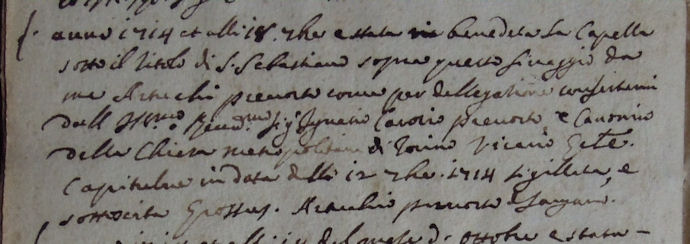 anno 1714 et alli 18. 7bre e stata benedeta La Capella
sotto il titolo di S. Sebastiano sopra questo finaggio da
me prevosto come per dellegatione conferitami
dall Ill.mo Rever.mo Sig.r Ignatio Carocio prevosto e Canonico
della Chiesa metropolitana di Torino Vicario G.le
Capitulare in data delli 12 7bre 1714 sigillata, e
sottoscrita Grossus. prevosto
del mese di ottobre e stata